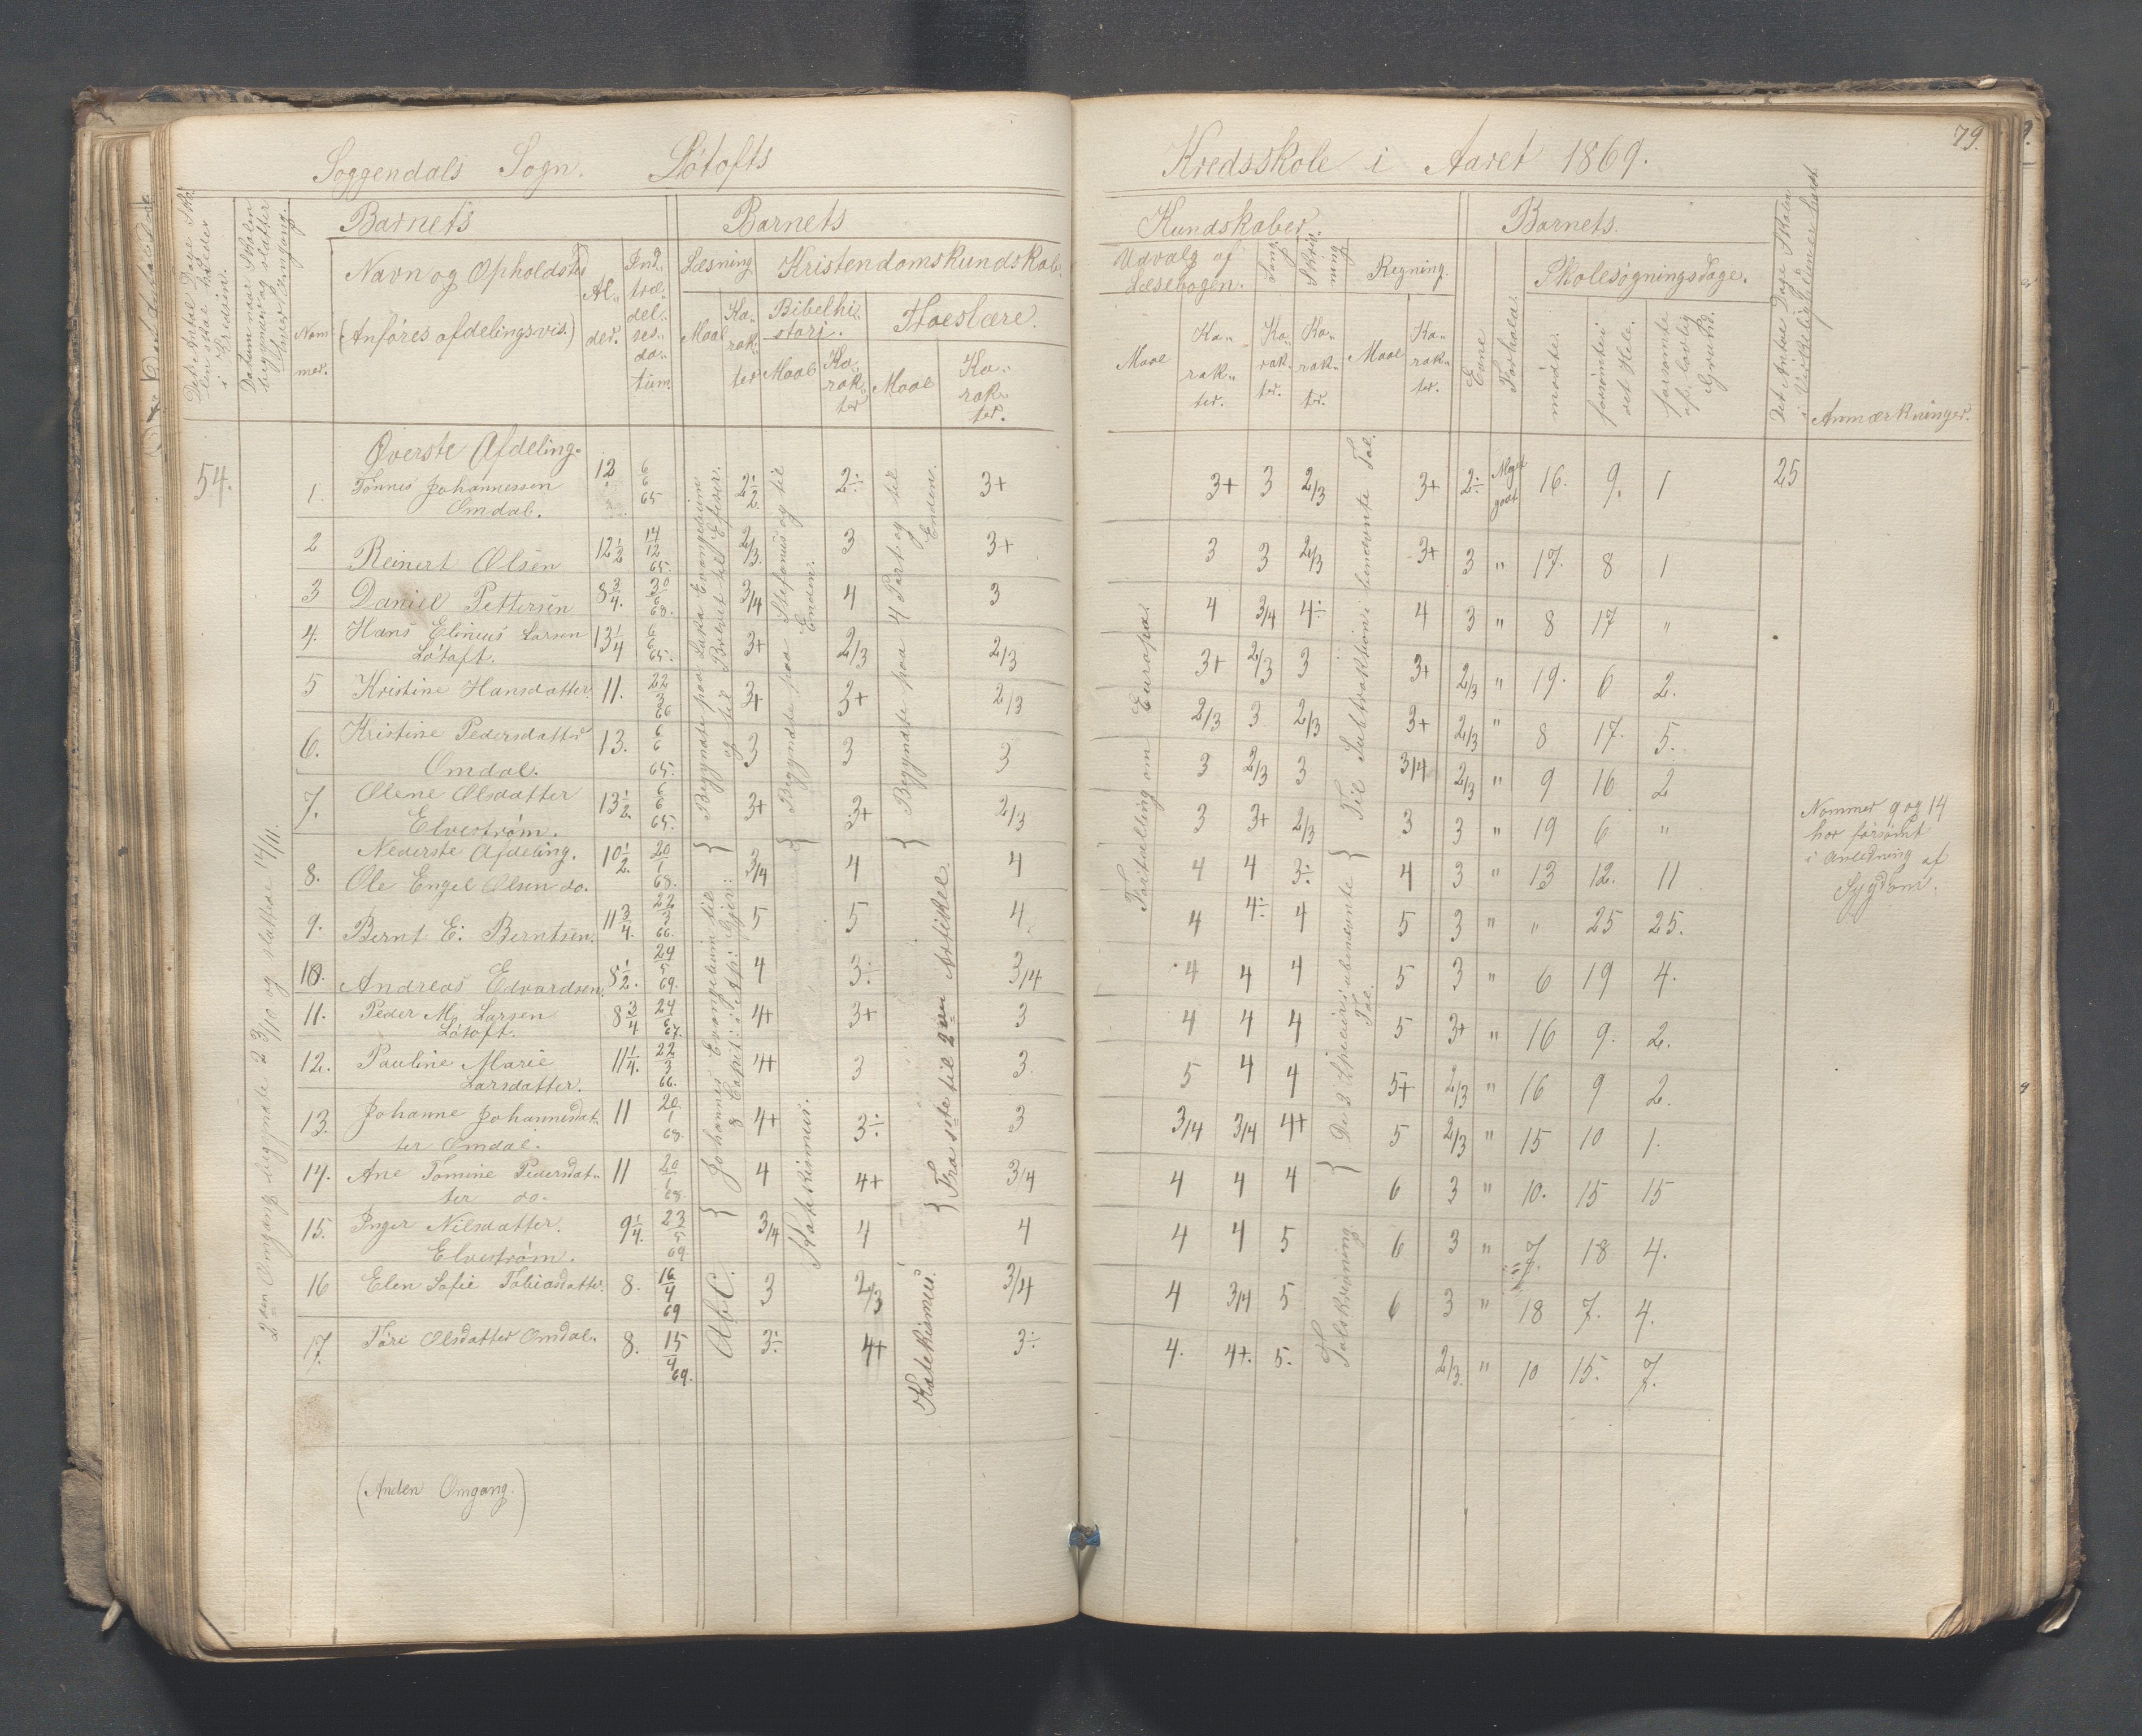 79.
Soggendals Sogn. Løtofts Kredsskole i Aaret 1869.
Barnets Barnets Kundskaber Barnets.
Det Antal Dage
i Kredsen.
Datum naar Skolen begynder og slutter
hver Omgang.
Nom
mer.
Navn og Opholdsted
(Anføres afdelingsvis.)
Al-
der.
Ind-
træ-
del-
ses-
da-
tum.
Læsning
Maal
Ka-
rak-
ter
Kristendomskundskab.
Bibelhi-
stori.
Maal
Ka-
rak-
ter
Troeslære.
Maal
Ka-
rak-
ter.
Udvalg af
Læsebogen.
Maal
Ka-
rak-
ter.
Sang
Ka-
rak-
ter.
Skriv-
ning
Ka-
rak-
ter.
Regning.
Maal
Ka-
rak-
ter.
Evne
Forhold.
Skolesøgningsdage.
mødte.
forsømte i
det Hele.
forsømte
af lovlig
Grund.
Det Antal Dage Skolen
i Virkeligheden er holdt
Anmærkninger.
54.
2den Omgang begyndte 23/10 og sluttede 14/11.
Øverste Afdeling.
1. Tønnes Johannessen Omdal. 12 6/6 65 2/2 2÷ 3+ 3+ 3 2/3 3+ 2÷ Meget godt 16. 9. 1 25
2 Reinert Olsen 12 1/2 14/12 65. 2/3. 3 3+ 3 3 2/3 3+ 3 " 17. 8 1
3 Daniel Pettersen 8 3/4. 30/6 68. 3/4 4 3 4 3/4 4÷ 4 3 " 8 17 "
4. Hans Elineus Larsen Løtoft. 13 1/4 6/6 65. 3+ 2/3 2/3 3+ 2/3 3 3+ 2/3 " 19. 6 2.
5 Kristine Hansdatter 11. 22/3 66 3+ 3+ 2/3 2/3 3 2/3 3+ 2/3 " 8 17. 5.
6. Kristine Pedersdatter Omdal. 13. 6/6 65. 3 3 3 3 2/3 3 3/4 2/3 " 9 16 2
7. Olene Olsdatter Elvestrøm. 13 1/2. 6/6 65. 3+ 3+ 2/3 3 3+ 2/3 3 3 " 19 6 "
Nederste Afdeling.
8. Ole Engel Olsen do. 10 1/2. 20/1 68. 3/4 4 4 4 4 3÷ 4 3 " 13 12. 11
9. Bernt E. Berntsen. 11 3/4. 22/3 66. 5 5 4 4 4÷ 4 5 3 " " 25 25.
10. Andreas Edvardsen. 8 1/2. 24/5 69. 4 3÷ 3/4 4 4 4 5 3 " 6 19 4.
11. Peder M. Larsen Løtoft. 8 3/4 24/6 67. 4+ 3+ 3 4 4 4 5 3+ " 16 9. 2.
12. Pauline Marie Larsdatter. 11 1/4. 22/3 66. 4+ 3 3 5 4 4 5+ 2/3 " 16 9 2.
13. Johanne Johannesdat-
ter Omdal. 11 20/1 68. 4+ 3÷ 3 3/4 3/4 4+ 5 2/3 " 15 10 1.
14. Ane Tomine Pedersdat-
ter do. 11 20/1 68. 4 4+ 3/4 4 4 4 6 3 " 10. 15 15
15. Inger Nilsdatter. Elvestrøm. 9 1/4. 23/5 69 3/4 4 4 4 4 5 6 3 " 7. 18 4.
16 Elen Sofie Tobiasdatter. 8. 16/4 69 3 2/3 3/4 4 3/4 5 6 3 " 18 7. 4.
17. Tøri Olsdatter Omdal. 8. 15/4 69. 3÷ 4+ 3÷ 4. 4+. 5. 2/3. " 10 15. 7.
Begyndte paa Lukas Evangelium
og til Brevet til Efeser.
Johannes Evangelium til
8 Capit: i Ap: Gjer:
AbC.
Begyndte paa Stefanus og til
Enden.
Katekismus.
Begyndte paa 4 Part og til
Enden.
Fra 1ste til 2den Artikel
Katekismus.
Fortælling om Europa.
Til Subtraktion i benævnte Tal.
De 2 Specier i ubenævnte
Tal.
Talskrivning
Nommer 9 og 14
har forsømt
i Anledning af
Sygdom.
(Anden Omgang.)